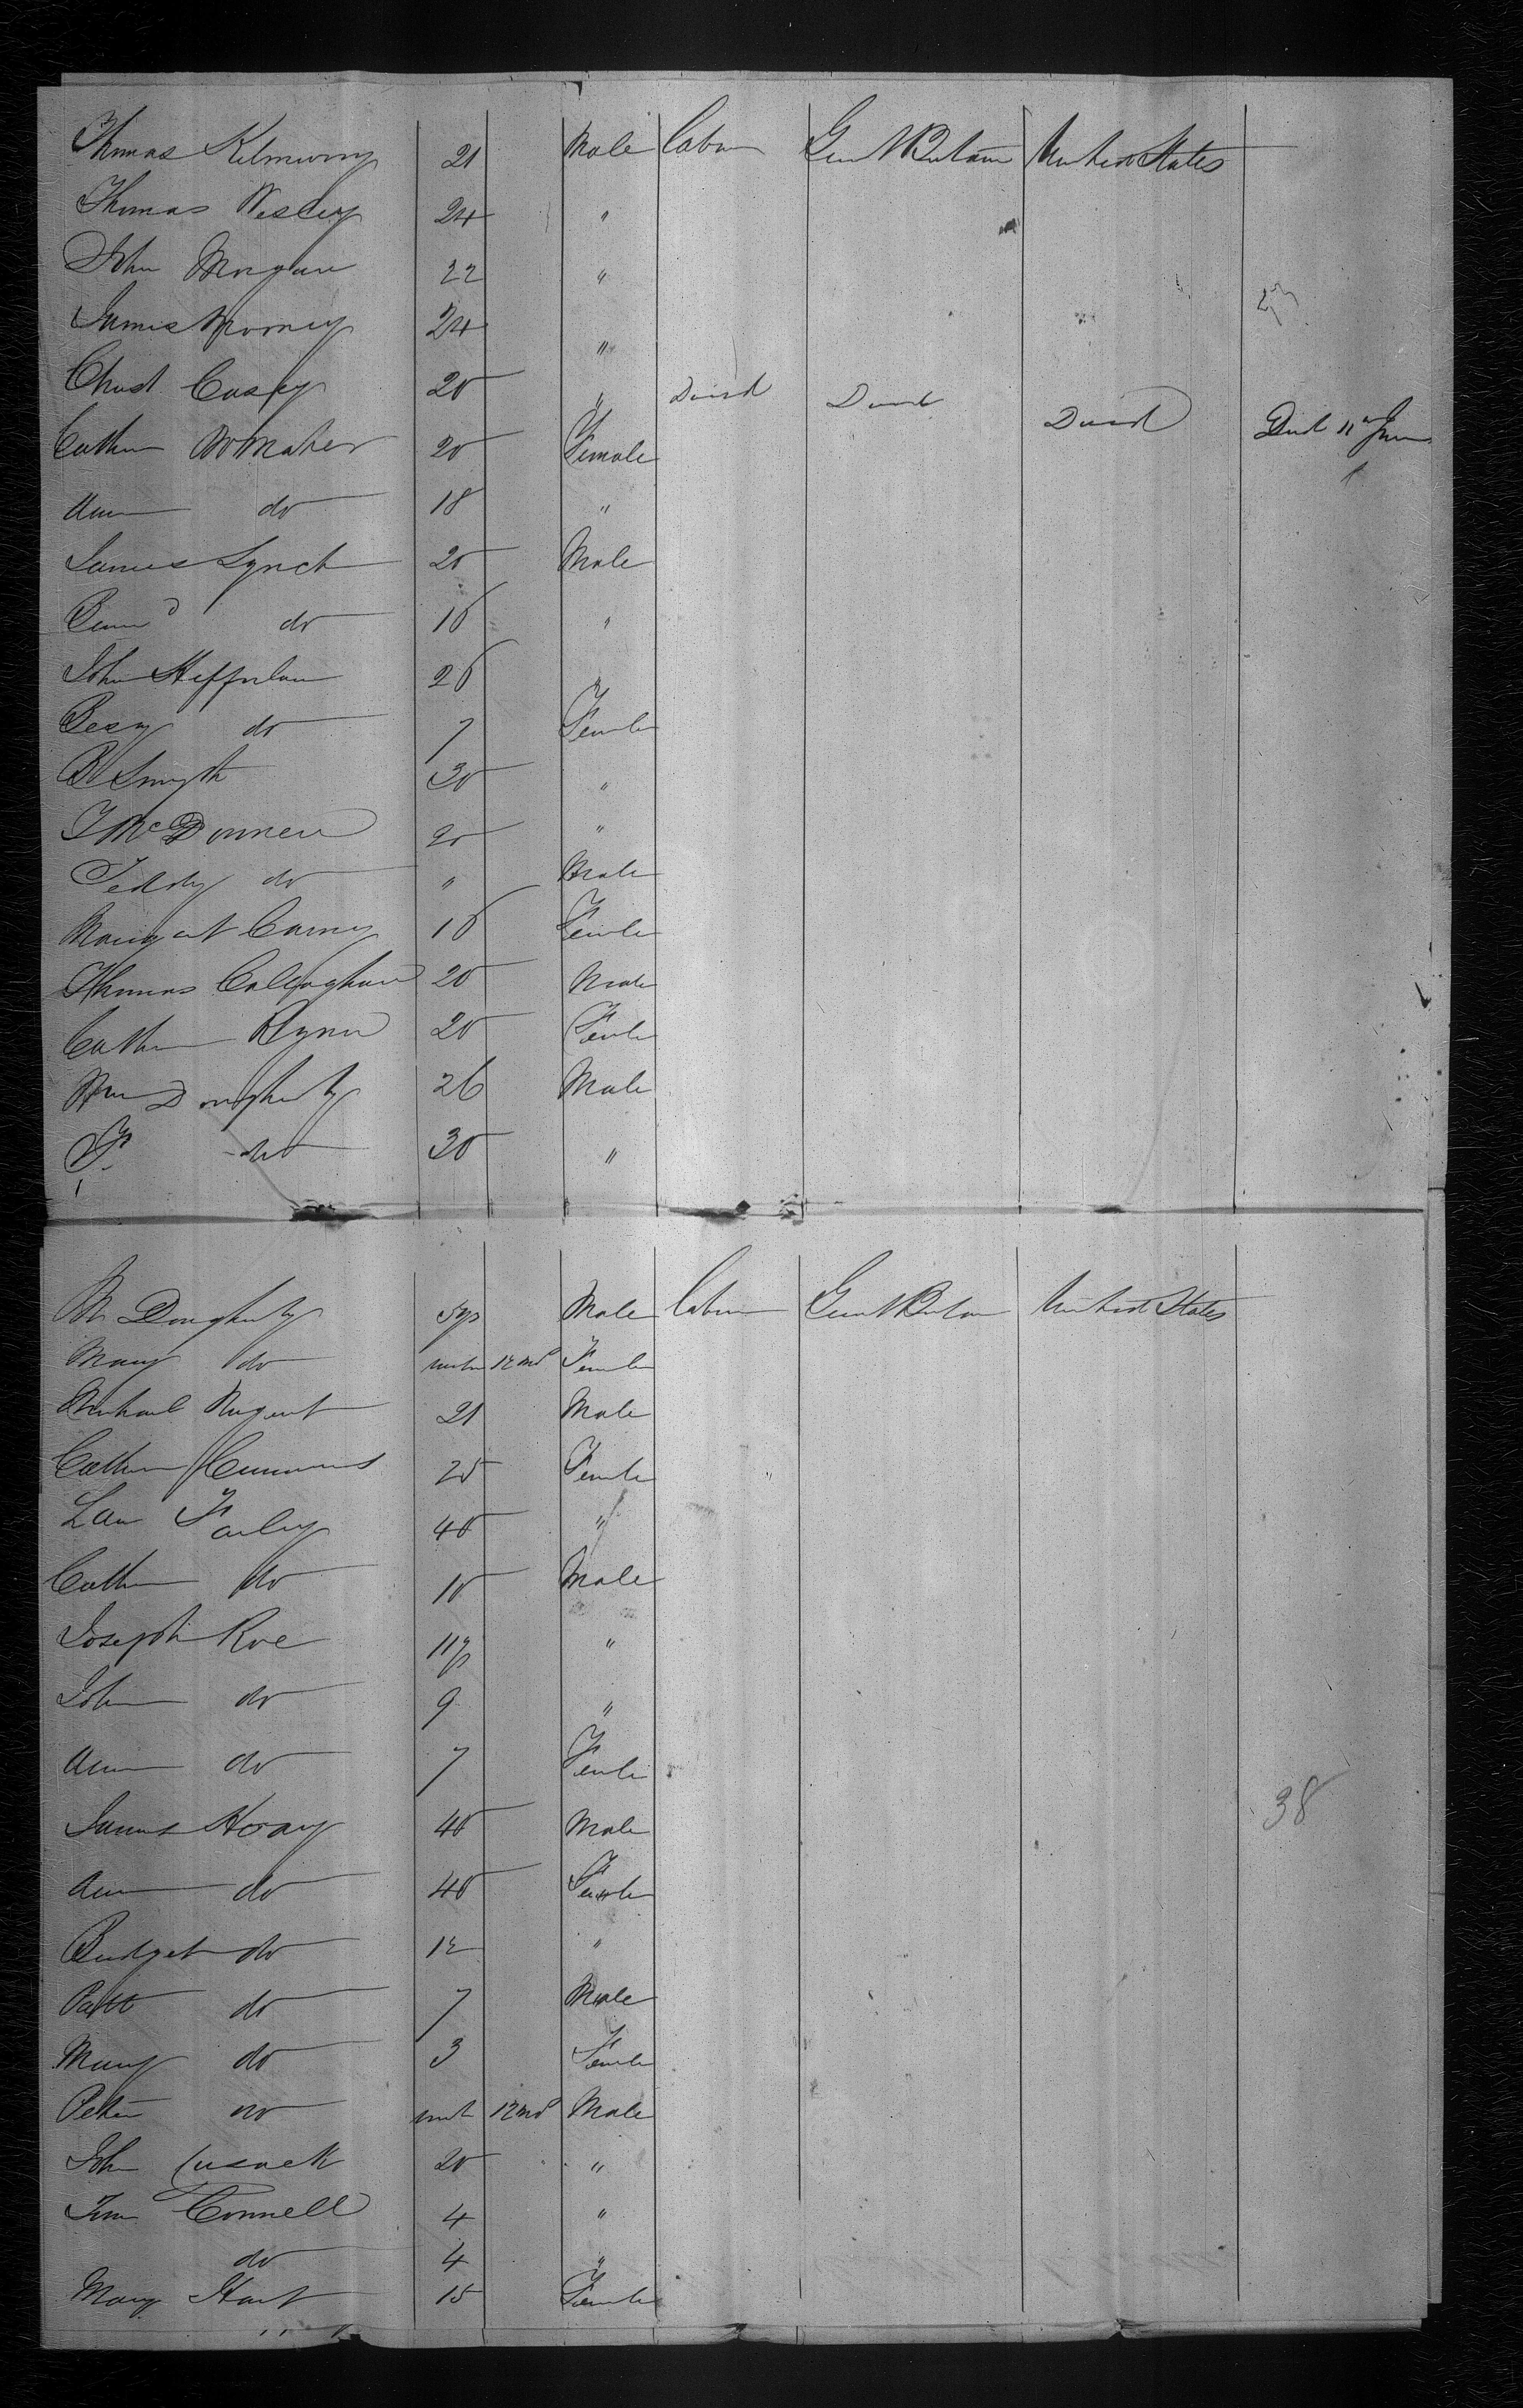 Thomas 21 Male Labour Great Britain United States
Thomas 24 "
John Morgan 22 "
James Mooney 24 "
Christ Casey 20 "
Cathn McMaher 20 Female
Ann do 18 "
James Lynch 20 Male
do 16 "
John Heffrelan 26 "
Bessy do 7 Female
B Smyth 30 "
T McDonnell 20 "
Teddy do " Male
Margaret Carny 16 Female
Thomas Callaghan 20 Male
Cathn Flynn 20 Female
Wm Dougherty 26 Male
P. do 30 "
M Dougherty 5 Male Labour Great Britain United States
Mary do 12 Female
Michael Nugent 21 Male
Cathn Cummins 25 Female
Law Farley 40 "
Cathn do 10 Male
Joseph Roe 11 "
John do 9 "
Ann do 7 Female
James Hoary 40 Male
38
Ann do 40 Female
Bridget do 12 "
Patt do 7 Male
Mary do 3 Female
Peter do 12 Male
John Cusack 20 "
Connell 4 "
do 4 "
Mary Hart 15 Female